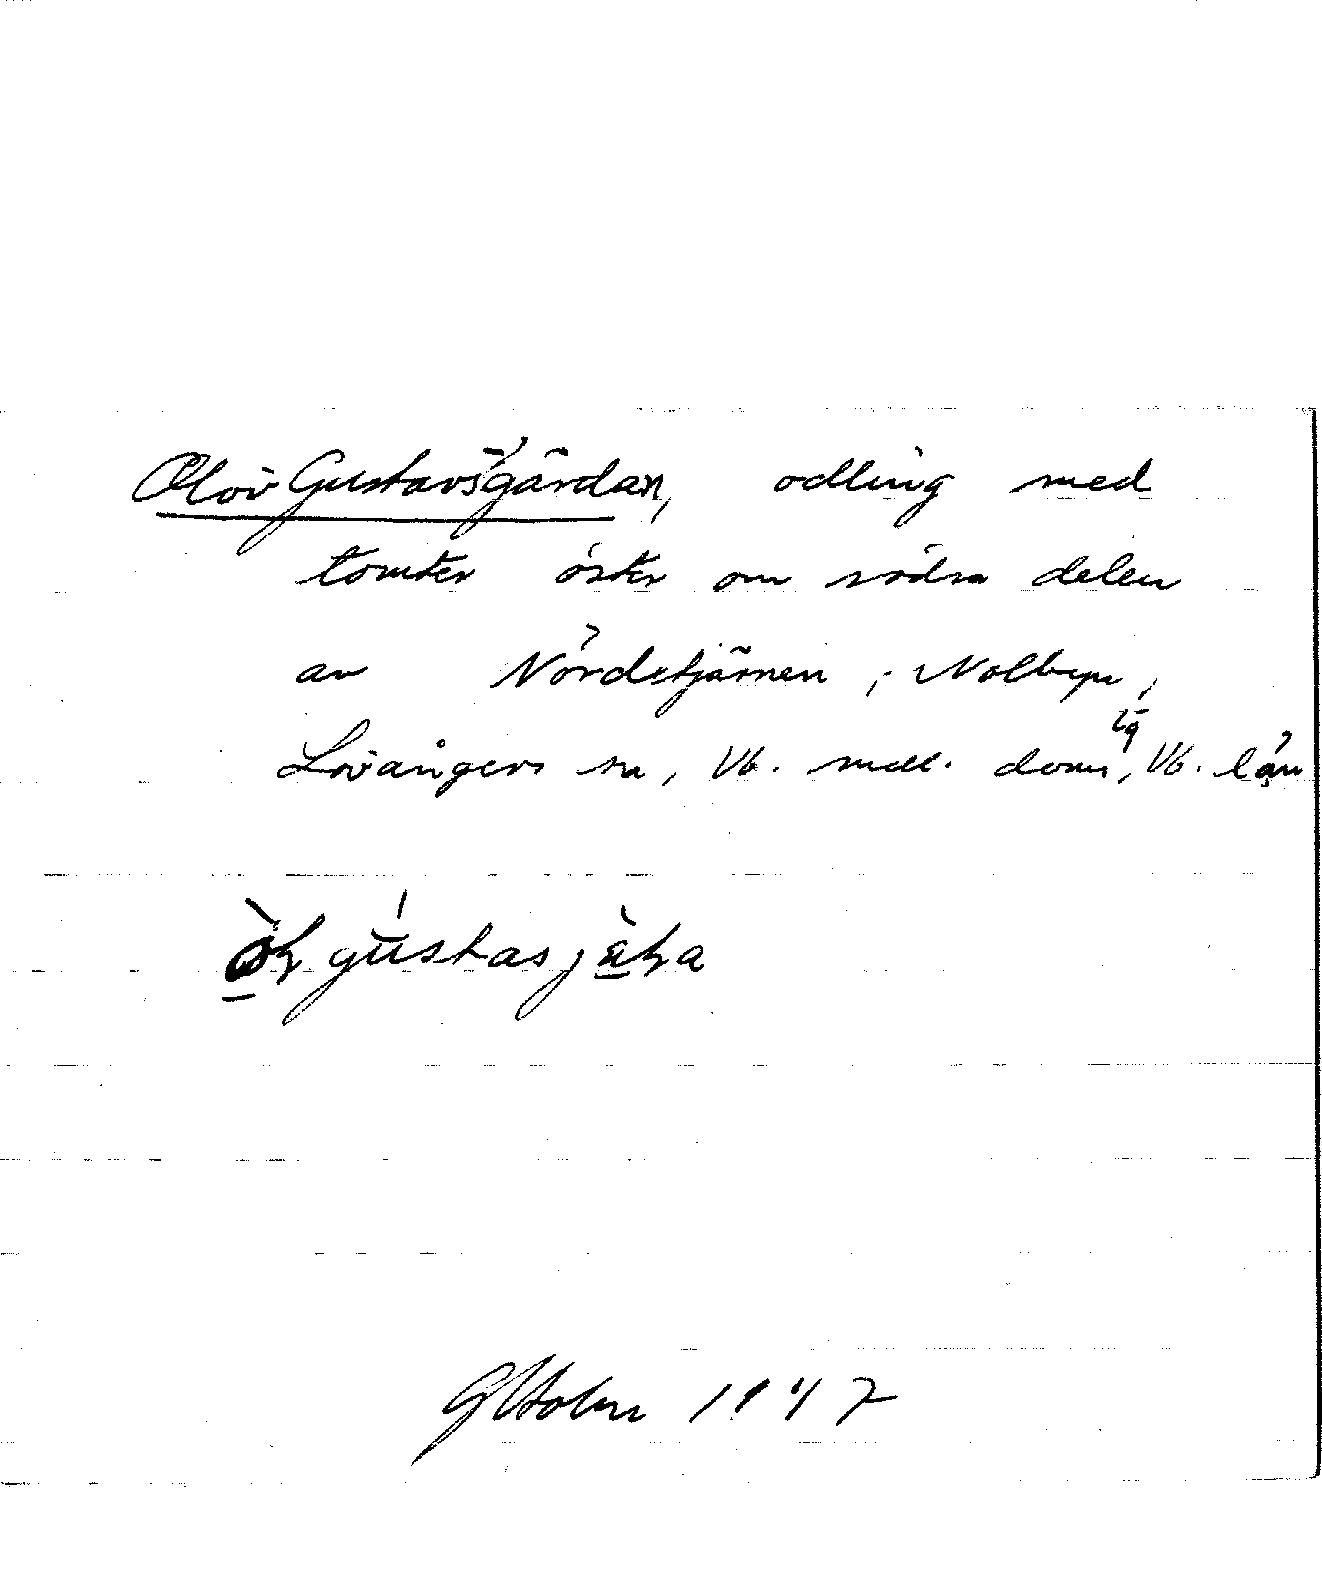 Olov Gustavsgärdan, odling med
tomter öster om södra delen
av Nördstjärnen, Nolbyn,
Lövångers sn, Vb. mell. doms, Vb. län
gustas
GHolm 1947